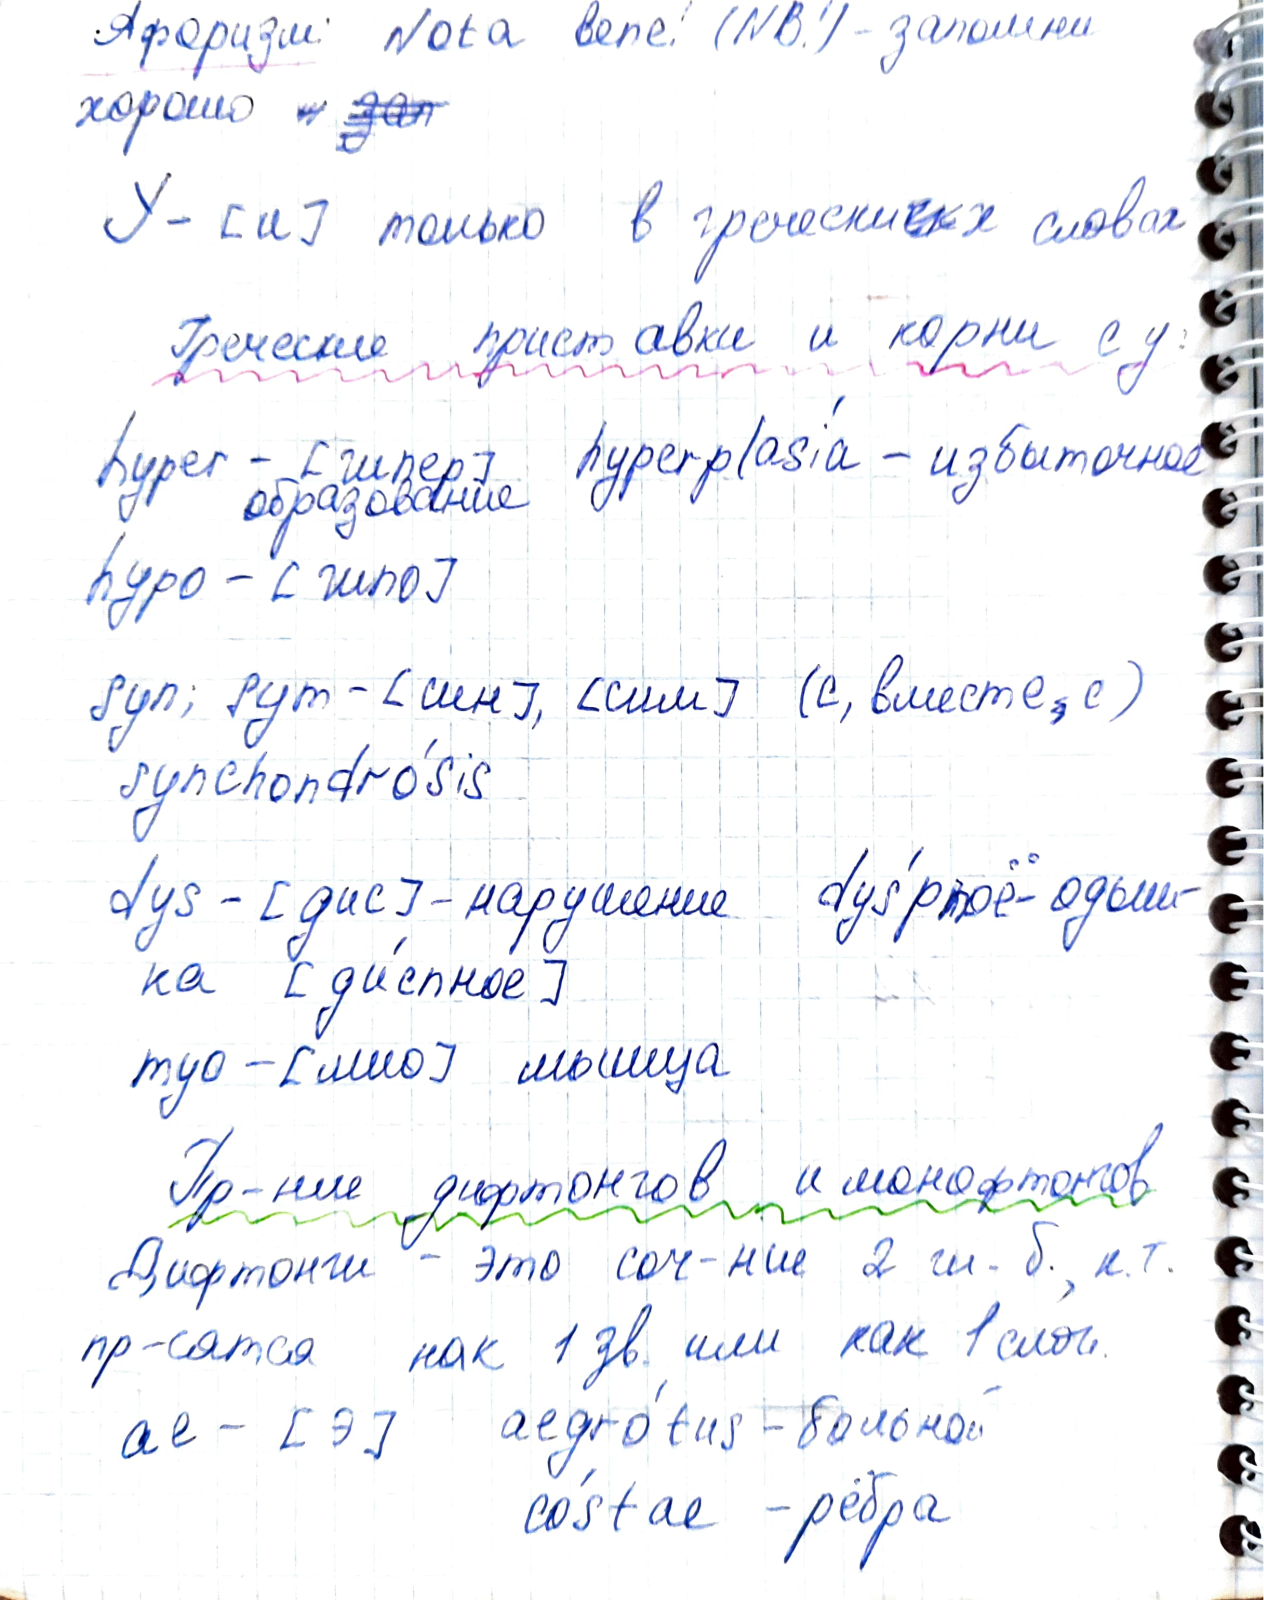 Афоризм: Nota bene! (NB!) - запомни
хорошо
Y - [и] только в греческих словах
Греческие приставки и корни с y:
hyper - [гипер] hyperplasía - избыточное
образование
hypo - [гипо]
syn; sym - [син], [сим] (с, вместе, с)
synchondrósis
dys - [дис] - нарушение dýspnoë - одыш-
ка [дúспное]
myo - [мио] мышца
Пр-ние дифтонгов и монофтонгов
Дифтонги - это соч-ние 2 гл. б., к.т.
пр-сятся как 1 зв. или как 1 слог.
ae - [э] aegrótus - больной
cóstae - рёбра